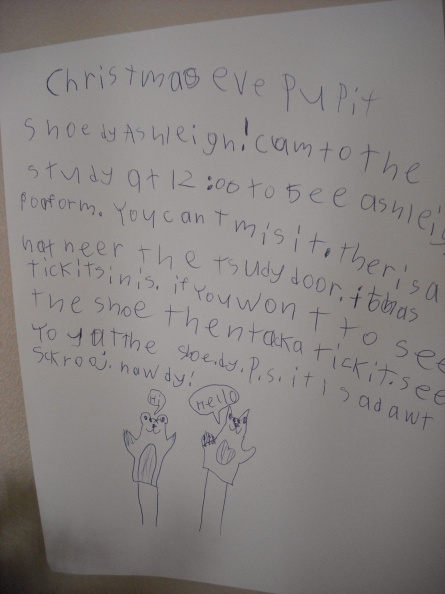 Christmas eve pupit
shoe dy Ashleigh! cam to the
study at 12:00 to see ashleig
poorform. You can t mis it. ther is a
hat neer the tsudy door. it has
tickits in is. if You won t to see
the shoe then taka tickit. see
Yo y at the shoe. dy. p.s. it is adawt
Sckrooj. how dy!
Hi
Hello